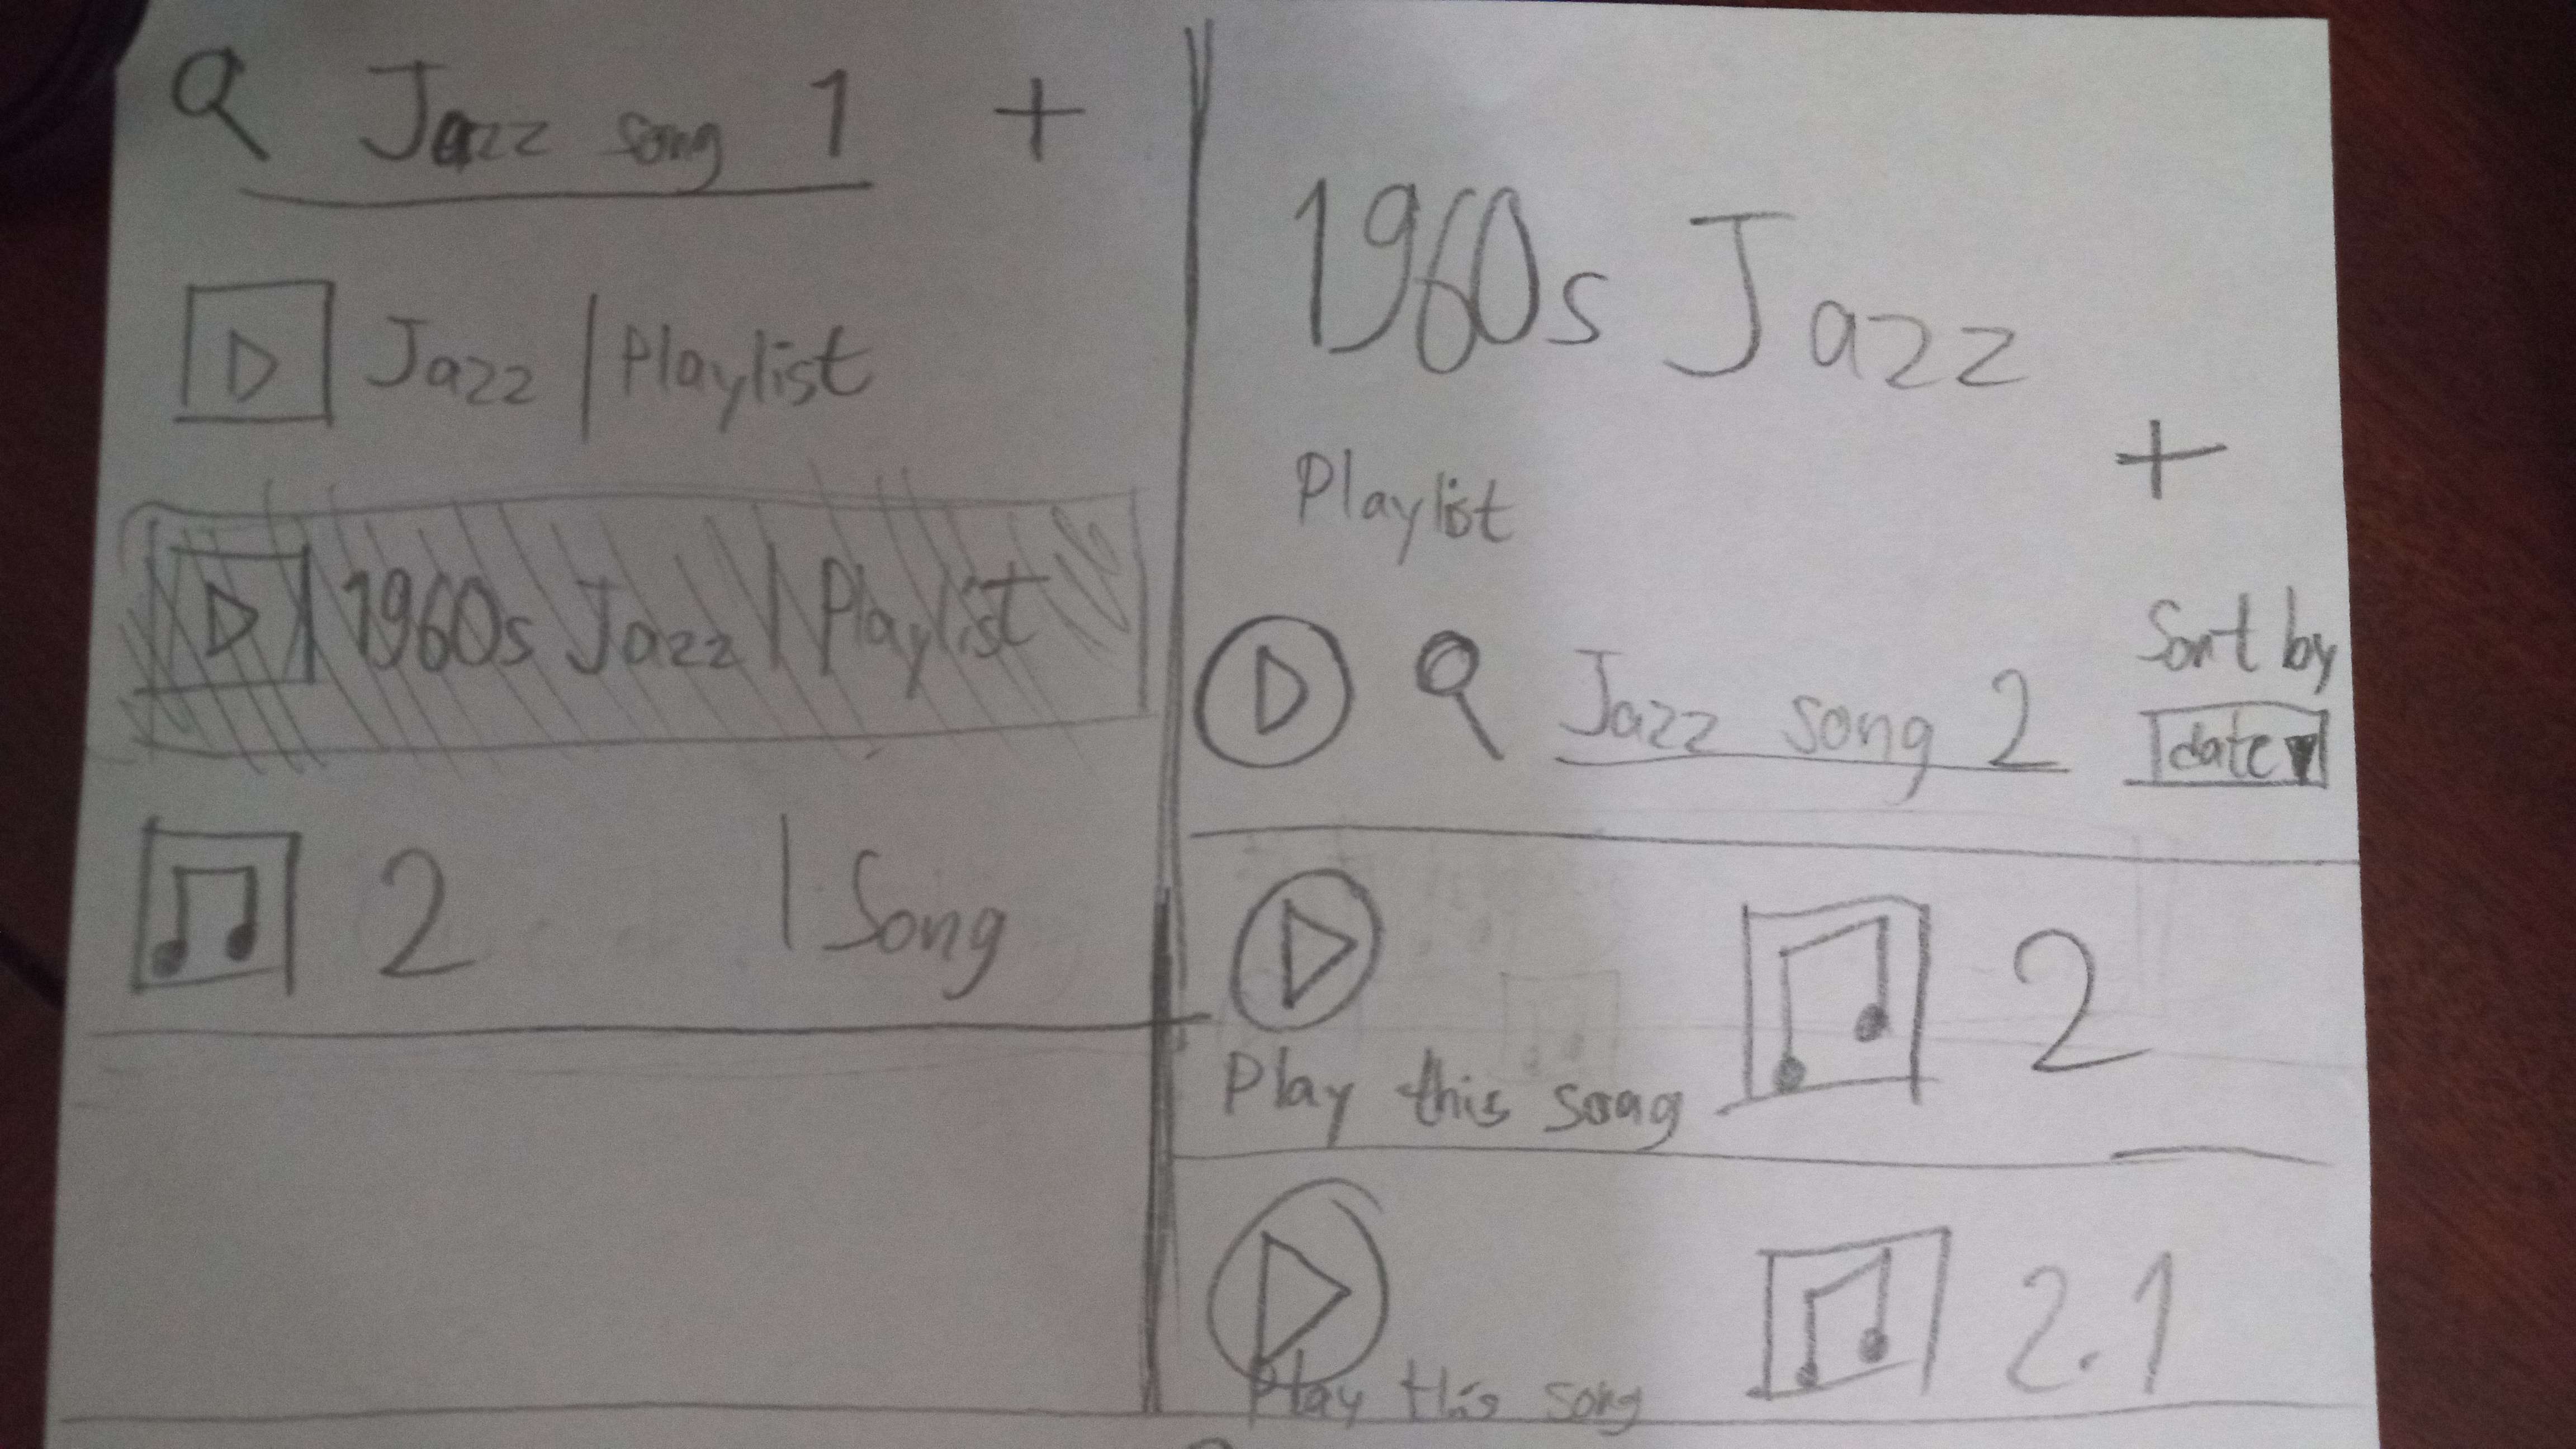 Jazz song 1 +
Jazz | Playlist
1960s Jazz | Playlist
2 | Song
1960s Jazz
Playlist
+
Jazz song 2
Sort by
date
2
Play this song
2.1
Play this song